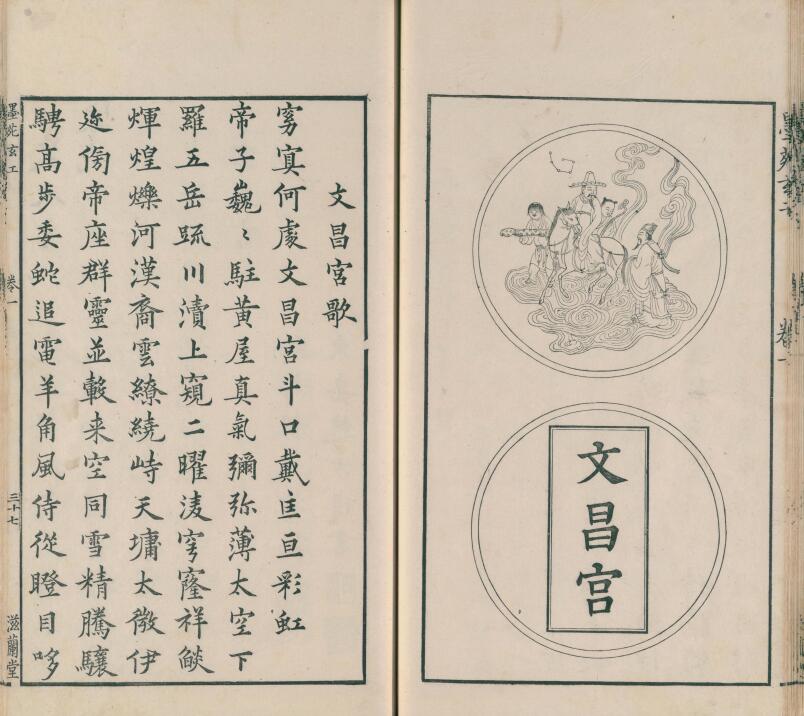 文昌宮
文昌宮歌
窈冥何處文昌宮斗口戴匡亘彩虹
帝子巍〻駐黃屋真氣彌弥薄太空下
羅五岳䟽川瀆上窺二曜淩穹窿祥燄
煇煌爍河漢裔雲繚繞峙天墉太微伊
迩傍帝座群靈並轂来空同雪精騰驤
騁高步委蛇追電羊角風侍從瞪目哆
墨苑玄工
卷一
三十七
滋蘭堂